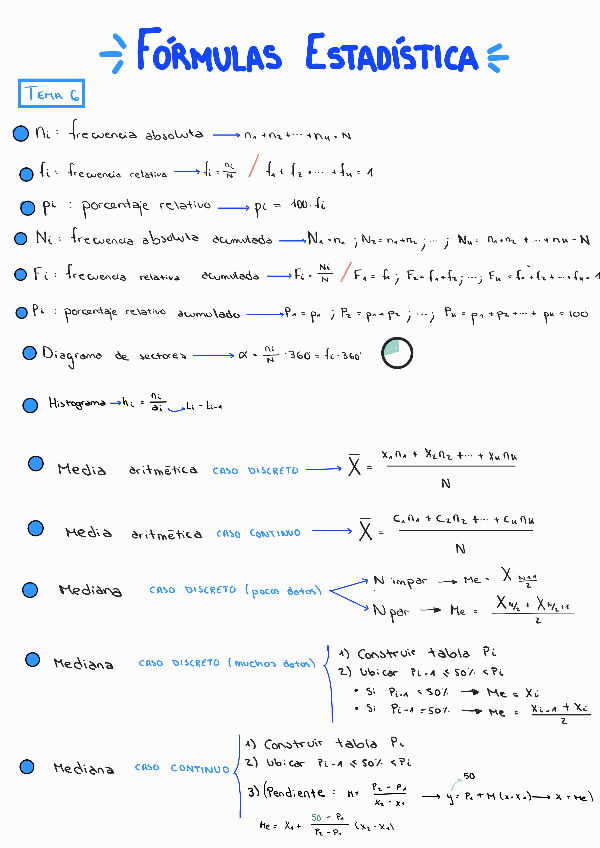 FÓRMULAS ESTADÍSTICA
TEMA 6
ni : frecuencia absoluta → n1 + n2 + ... + nk = N
fi : frecuencia relativa → fi = ni/N / f1 + f2 ... + fk = 1
pi : porcentaje relativo → pi = 100·fi
Ni : frecuencia absoluta acumulada → N1 = n1 ; N2 = n1+n2 ; ... ; Nk = n1+n2 + ... + nk = N
Fi : frecuencia relativa acumulada → Fi = Ni/N / F1 = f1 ; F2 = f1+f2 ; ... ; Fk = f1+f2 + ... + fk = 1
Pi : porcentaje relativo acumulado → P1 = p1 ; P2 = p1+p2 ; ... ; Pk = p1+p2 + ... + pk = 100
Diagrama de sectores → α = ni/N · 360° = fi · 360°
Histograma → hi = ni/ai → Li - Li-1
Media aritmética CASO DISCRETO → X̄ = (x1n1 + x2n2 + ... + xknk)/N
Media aritmética CASO CONTINUO → X̄ = (c1n1 + c2n2 + ... + cknk)/N
Mediana CASO DISCRETO (pocos datos)
N impar → Me = X (N+1)/2
N par → Me = (X N/2 + X N/2+1)/2
Mediana CASO DISCRETO (muchos datos)
1) Construir tabla Pi
2) Ubicar Pi-1 ≤ 50% < Pi
• Si Pi-1 < 50% → Me = Xi
• Si Pi-1 = 50% → Me = (Xi-1 + Xi)/2
Mediana CASO CONTINUO
1) Construir tabla Pi
2) Ubicar Pi-1 ≤ 50% < Pi
50
3) (Pendiente : M = (P2 - P1)/(X2 - X1) → y = P1 + M (x-x1) → x = Me)
Me = X1 + (50 - P1)/(P2 - P1) (X2 - X1)